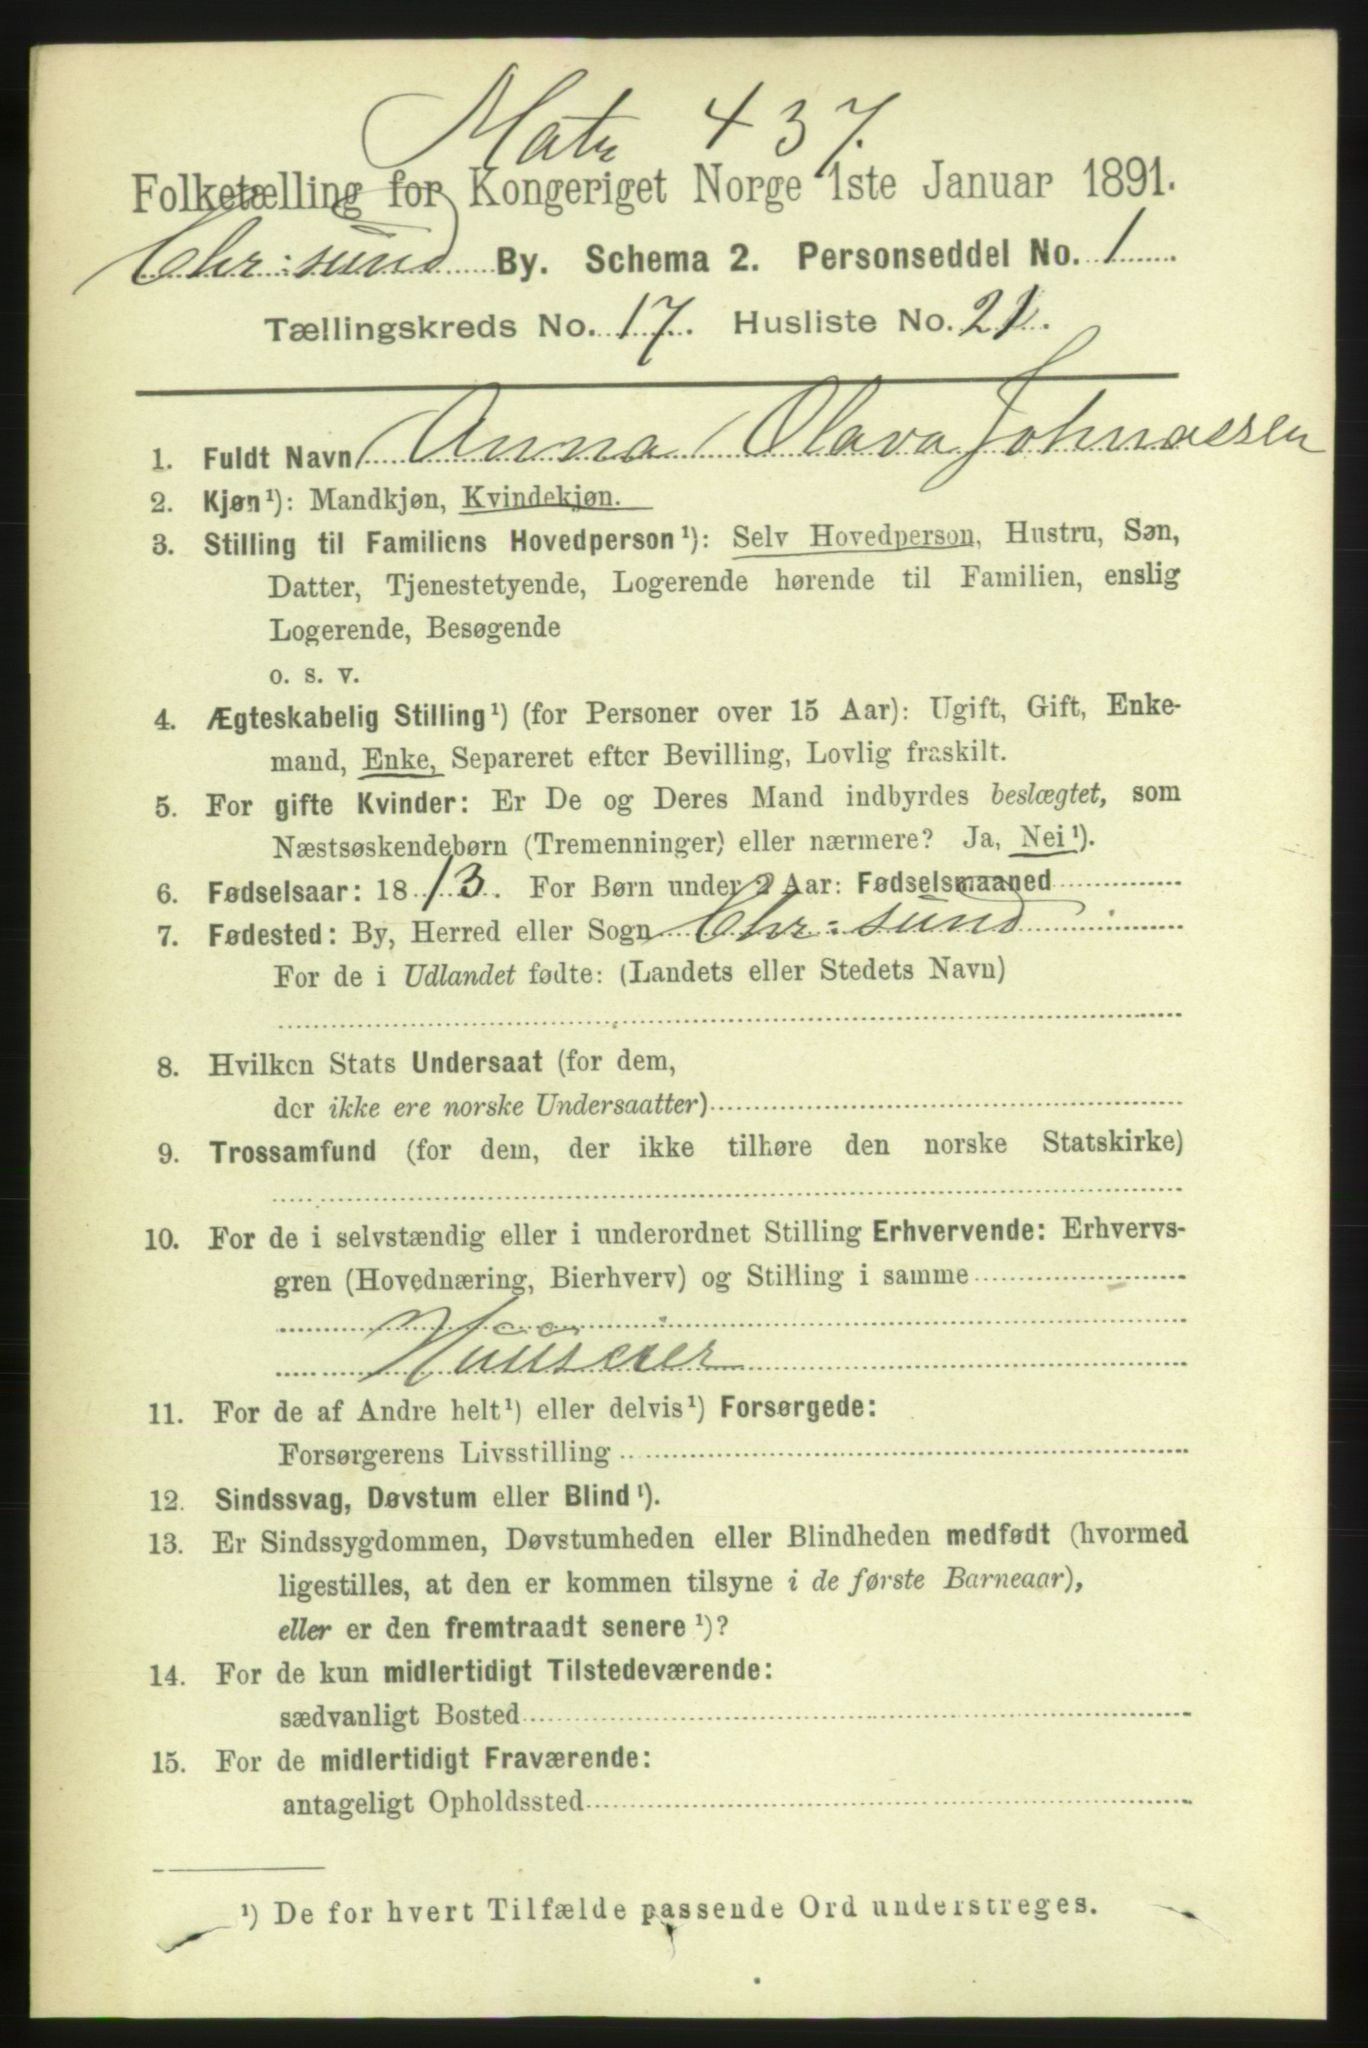 Matr 437.
Folketælling for Kongeriget Norge 1ste Januar 1891.
Chr:sund By. Schema 2. Personseddel No. 1
Tællingskreds No. 17. Husliste No. 21.
1. Fuldt Navn Anna Olava Johnassen
2. Kjøn¹): Mandkjøn, Kvindekjøn.
3. Stilling til Familiens Hovedperson¹): Selv Hovedperson, Hustru, Søn,
Datter, Tjenestetyende, Logerende hørende til Familien, enslig
Logerende, Besøgende
o. s. v.
4. Ægteskabelig Stilling¹) (for Personer over 15 Aar): Ugift, Gift, Enke-
mand, Enke, Separeret efter Bevilling, Lovlig fraskilt.
5. For gifte Kvinder: Er De og Deres Mand indbyrdes beslægtet, som
Næstsøskendebørn (Tremenninger) eller nærmere? Ja, Nei¹).
6. Fødselsaar: 1813. For Børn under 2 Aar: Fødselsmaaned
7. Fødested: By, Herred eller Sogn Chr:sund
For de i Udlandet fødte: (Landets eller Stedets Navn)
8. Hvilken Stats Undersaat (for dem,
der ikke ere norske Undersaatter)
9. Trossamfund (for dem, der ikke tilhøre den norske Statskirke)
10. For de i selvstændig eller i underordnet Stilling Erhvervende: Erhvervs-
gren (Hovednæring, Bierhverv) og Stilling i samme
Huuseier
11. For de af Andre helt¹) eller delvis¹) Forsørgede:
Forsørgerens Livsstilling
12. Sindssvag, Døvstum eller Blind¹).
13. Er Sindssygdommen, Døvstumheden eller Blindheden medfødt (hvormed
ligestilles, at den er kommen tilsyne i de første Barneaar),
eller er den fremtraadt senere¹)?
14. For de kun midlertidigt Tilstedeværende:
sædvanligt Bosted
15. For de midlertidigt Fraværende:
antageligt Opholdssted
¹) De for hvert Tilfælde passende Ord understreges.